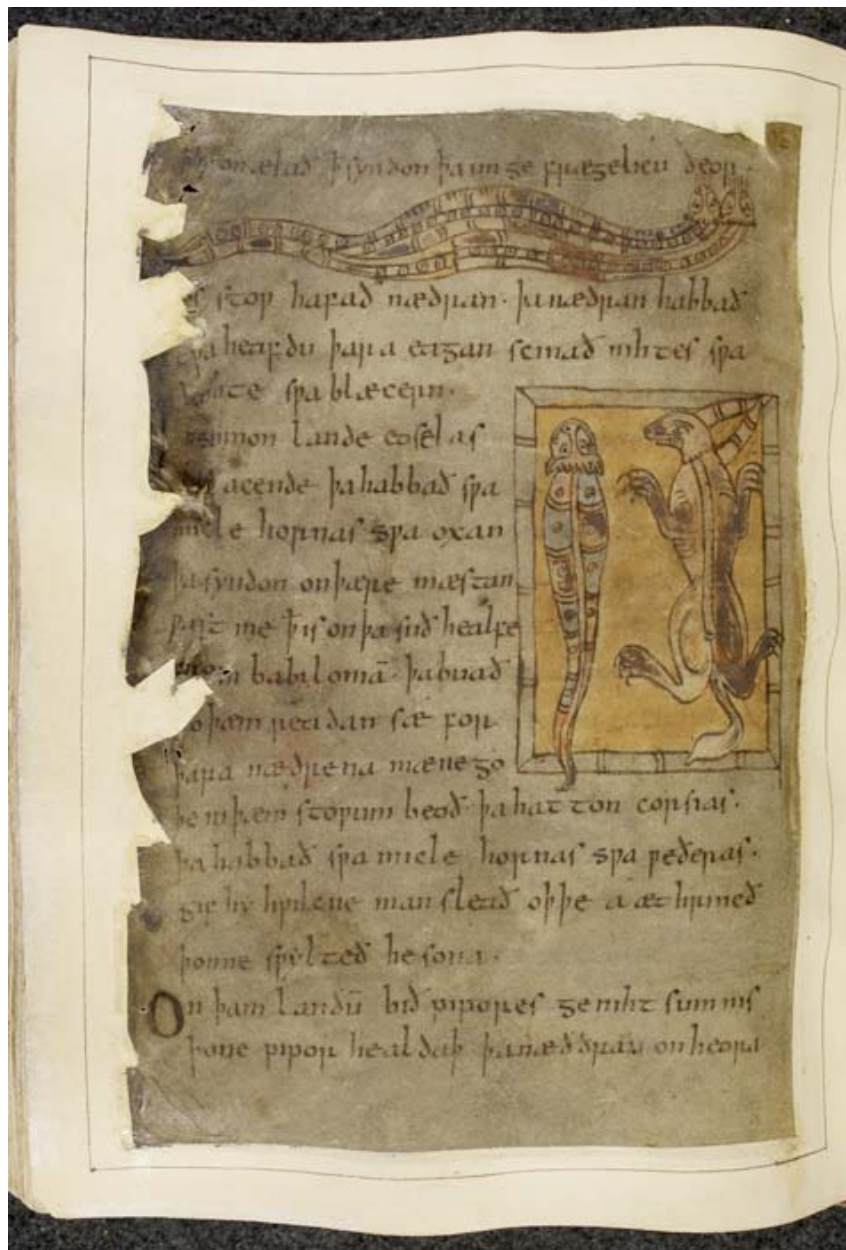 hy onælað ꝥ syndon þa ungefrægelicu deor.
es stoƿ hafað nædran. þa nædran habbað
tƿa heafdu þara eagan scinað nihtes sƿa
leohte sƿa blæcern.
on sumon lande eoselas
acende þa habbað sƿa
micle hornas sƿa oxan
þa syndon on þære mæstan
ƿæstine ꝥ is on þa suð healfe
from babiloniā. þa buað
to þæm readan sæ for
þara nædrena mænego
þe in þæm stoƿum beoð þa hatton corsias.
þa habbað sƿa micle hornas sƿa ƿeðeras.
gif hy hƿilcne man sleað oþþe a æthrineð
þonne sƿylteð he sona.
On þam landū bið pipores genihtsumnis
þone pipor healdaþ þa næddran on heora